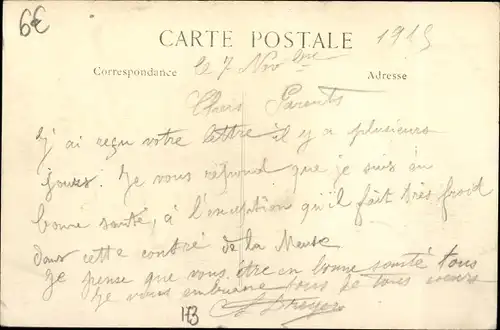 6€
CARTE POSTALE
1915
Correspondance
le 7 Novbre
Adresse
Chers Parents
J'ai reçu votre lettre il y a plusieurs
jours. Je vous répond que je suis en
bonne santé, à l'exception qu'il fait très froid
dans cette contré de la Meuse
Je pense que vous être en bonne santé tous
Je vous embrasse tous de tous cœurs
113